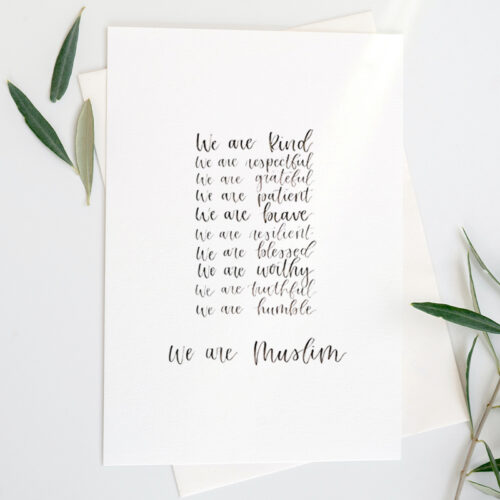 We are kind
We are respectful
We are grateful
We are patient
We are brave
We are resilient
We are blessed
We are worthy
We are truthful
We are humble
We are Muslim